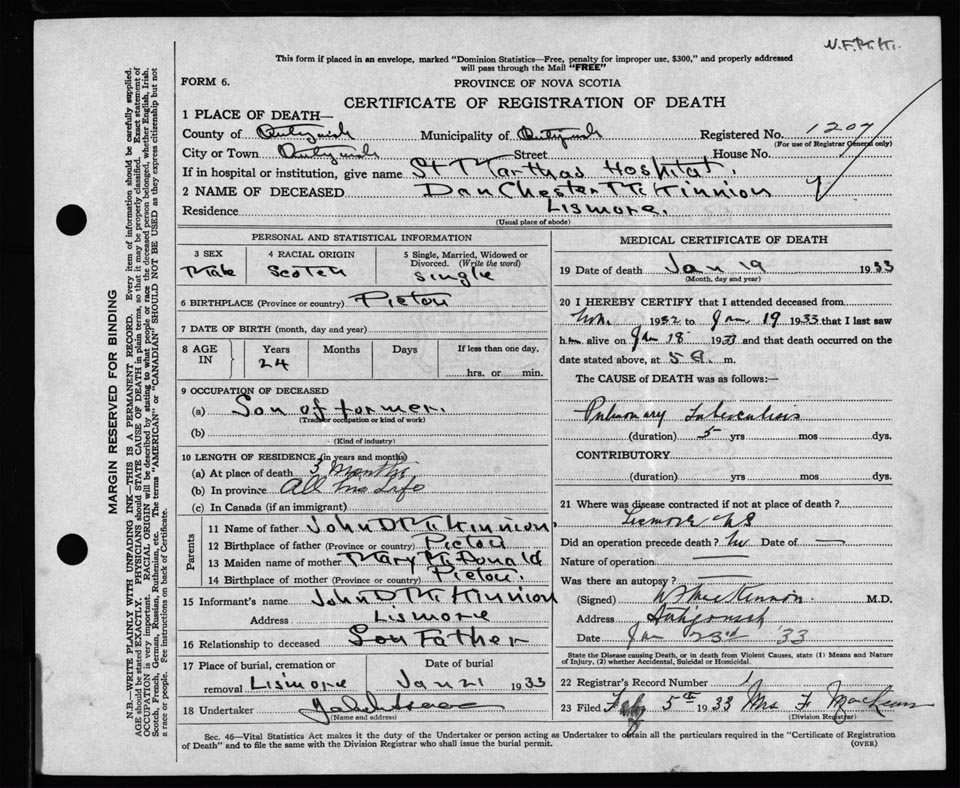 N.F.McK.
This form if placed in an envelope, marked "Dominion Statistics—Free, penalty for improper use, $300," and properly addressed
will pass through the Mail "FREE"
FORM 6.
PROVINCE OF NOVA SCOTIA
CERTIFICATE OF REGISTRATION OF DEATH
1 PLACE OF DEATH—
County of Antigonish Municipality of Antigonish Registered No. 1207
(For use of Registrar General only)
City or Town Antigonish Street House No.
If in hospital or institution, give name St Marthas Hospital.
2 NAME OF DECEASED Dan Chester McKinnion
Residence Lismore.
(Usual place of abode)
PERSONAL AND STATISTICAL INFORMATION
3 SEX Male
4 RACIAL ORIGIN Scotch
5 Single, Married, Widowed or Divorced. (Write the word) single
6 BIRTHPLACE (Province or country) Pictou
7 DATE OF BIRTH (month, day and year)
8 AGE IN Years 24 Months Days If less than one day, hrs. or min.
9 OCCUPATION OF DECEASED
(a) Son of farmer.
(Trade or occupation or kind of work)
(b)
(Kind of industry)
10 LENGTH OF RESIDENCE (in years and months)
(a) At place of death 3 Months
(b) In province All his Life
(c) In Canada (if an immigrant)
Parents
11 Name of father John D McKinnion.
12 Birthplace of father (Province or country) Pictou
13 Maiden name of mother Mary McDonald
14 Birthplace of mother (Province or country) Pictou.
15 Informant's name John D McKinnion
Address Lismore
16 Relationship to deceased Son Father
17 Place of burial, cremation or removal Lismore
Date of burial Jan 21 1933
18 Undertaker
(Name and address)
MEDICAL CERTIFICATE OF DEATH
19 Date of death Jan 19 1933
(Month, day and year)
20 I HEREBY CERTIFY that I attended deceased from
Nov. 1932 to Jan. 19 1933 that I last saw
him alive on Jan 18 1933 and that death occurred on the
date stated above, at 5 a. m.
The CAUSE of DEATH was as follows:—
Pulmonary Tuberculosis
(duration) 5 yrs mos dys.
CONTRIBUTORY
(duration) yrs mos dys.
21 Where was disease contracted if not at place of death?
Lismore NS
Did an operation precede death? No Date of —
Nature of operation —
Was there an autopsy? —
(Signed) W F MacKinnon M.D.
Address Antigonish
Date Jan 23rd '33
State the Disease causing Death, or in death from Violent Causes, state (1) Means and Nature
of Injury, (2) whether Accidental, Suicidal or Homicidal.
22 Registrar's Record Number 1
23 Filed Feb 5th 1933 Mrs F MacLean
(Division Registrar)
Sec. 46—Vital Statistics Act makes it the duty of the Undertaker or person acting as Undertaker to obtain all the particulars required in the "Certificate of Registration
of Death" and to file the same with the Division Registrar who shall issue the burial permit.
(OVER)
MARGIN RESERVED FOR BINDING
N.B.—WRITE PLAINLY WITH UNFADING INK—THIS IS A PERMANENT RECORD. Every item of information should be carefully supplied.
AGE should be stated EXACTLY. PHYSICIANS should STATE CAUSE OF DEATH in plain terms, so that it may be properly classified. Exact statement of
OCCUPATION is very important. RACIAL ORIGIN will be described by stating to what people or race the deceased person belonged, whether English, Irish,
Scotch, French, German, Russian, Ruthenian, etc. The terms "AMERICAN" or "CANADIAN" SHOULD NOT BE USED as they express citizenship but not
a race or people. See instructions on back of Certificate.